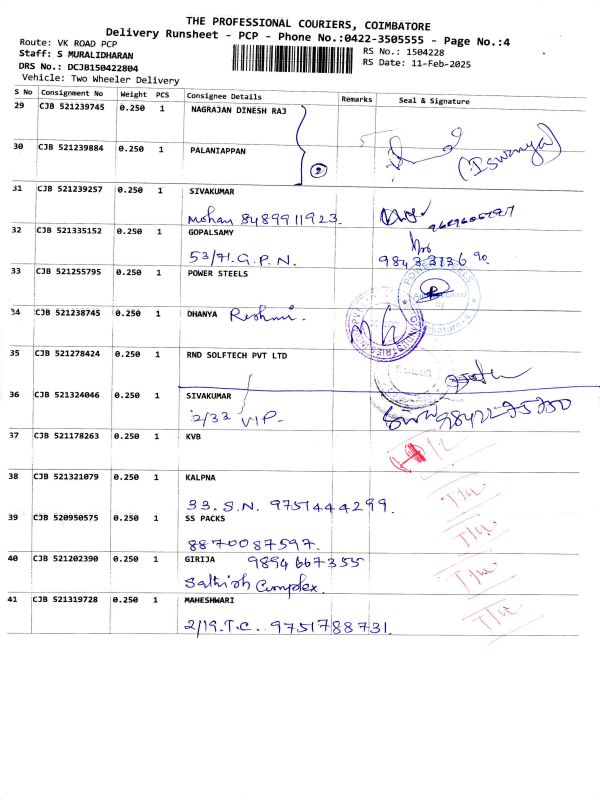 THE PROFESSIONAL COURIERS, COIMBATORE
Delivery Runsheet - PCP - Phone No.:0422-3505555 - Page No.:4
Route: VK ROAD PCP
RS No.: 1504228
Staff: S MURALIDHARAN
RS Date: 11-Feb-2025
DRS No.: DCJB150422804
Vehicle: Two Wheeler Delivery
S No Consignment No Weight PCS Consignee Details Remarks Seal & Signature
29 CJB 521239745 0.250 1 NAGRAJAN DINESH RAJ
30 CJB 521239884 0.250 1 PALANIAPPAN
2
(Iswarya)
31 CJB 521239257 0.250 1 SIVAKUMAR
Mohan 8489911923.
32 CJB 521335152 0.250 1 GOPALSAMY
53/71.G.P.N.
33 CJB 521255795 0.250 1 POWER STEELS
34 CJB 521238745 0.250 1 DHANYA Reshmi.
35 CJB 521278424 0.250 1 RND SOLFTECH PVT LTD
36 CJB 521324046 0.250 1 SIVAKUMAR
2/33 VIP.
37 CJB 521178263 0.250 1 KVB
38 CJB 521321079 0.250 1 KALPNA
33. S.N. 9751444299.
39 CJB 520950575 0.250 1 SS PACKS
8870087597.
40 CJB 521202390 0.250 1 GIRIJA 9894667355
Sathish Complex.
41 CJB 521319728 0.250 1 MAHESHWARI
2/19.T.C. 9751788731.